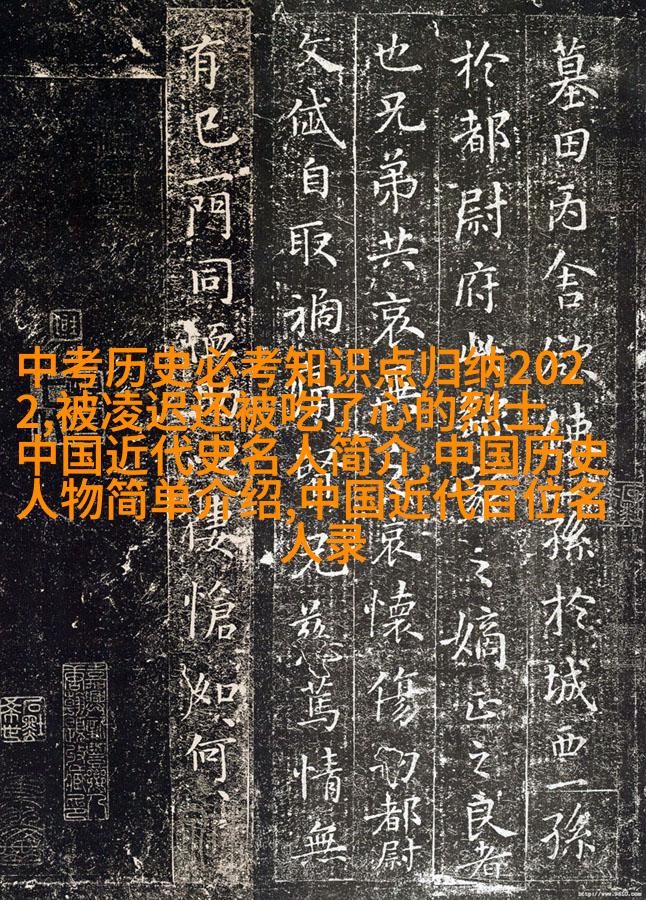 墓田丙舍欲使一孫於城西一孫
於都尉府此之嫡正之良者
也兄弟共哀哀懷傷切都尉
文岱自取禍兄慈篤情無
有已一門同悽愴如何
中考历史必考知识点归纳202
2,被凌迟还被吃了心的烈士,
中国近代史名人简介,中国历史
人物简单介绍,中国近代百位名
人录
http://www.9610.com